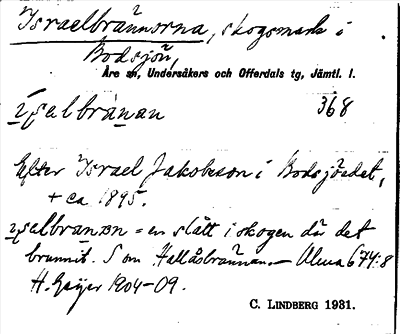 Israelbrännorna, skogsmark i
Bodsjön,
Åre sn, Undersåkers och Offerdals tg, Jämtl. l.
ı̄ʃsalbrànan 368
Efter Israel Jakobsson i Bodsjöedet,
+ ca 1895.
en slått i skogen där det
brunnit. Som Hallåsbrännan. — Alma 674:8
H. Geijer 1904–09.
C. LINDBERG 1931.